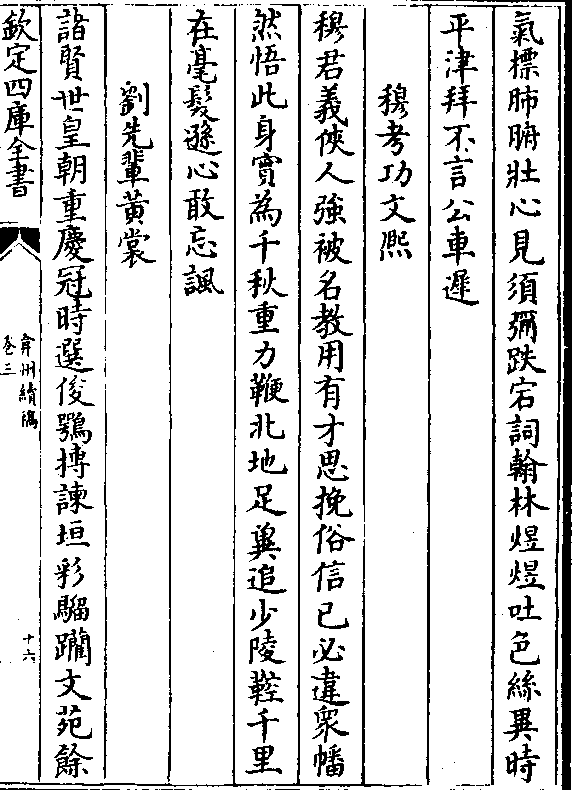 氣摽肺腑壯心見須彌跌宕詞翰林煜煜吐色絲異時
平津拜不言公車遲
穆考功文熈
穆君義俠人強被名教用有才思挽俗信已必違衆幡
然悟此身實為千秋重力鞭北地足冀追少陵鞚千里
在毫髮遜心敢忘諷
劉先輩黄裳
諧賢世皇朝重慶冠時選俊鶚摶諫垣彩騮躪文苑餘
欽定四庫全書
弇州續稿
卷三
十六